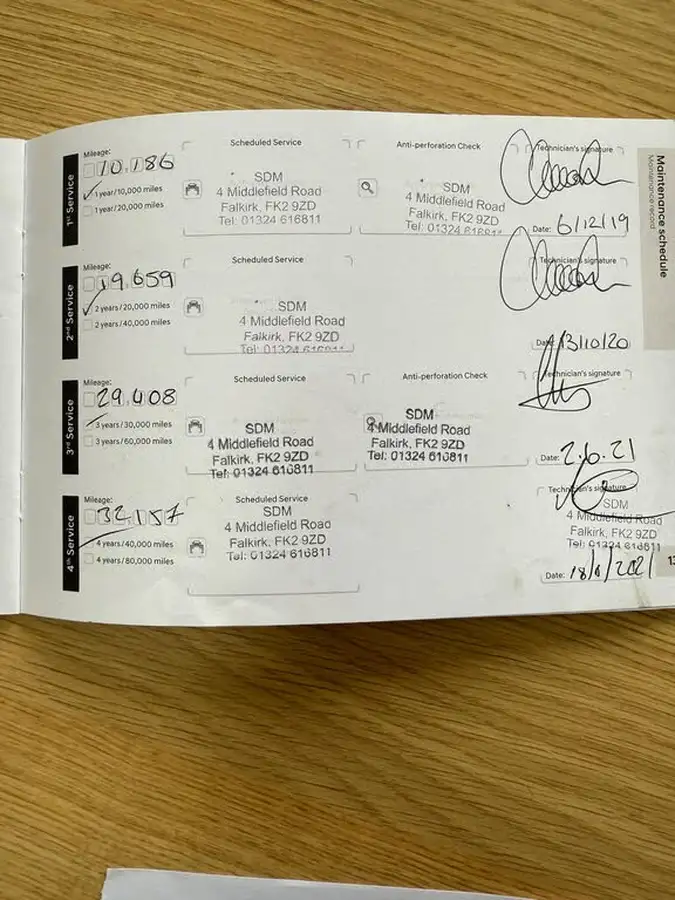 Maintenance schedule
Maintenance record
1st Service
Mileage:
10,186
1 year/10,000 miles
1 year/20,000 miles
Scheduled Service
SDM
4 Middlefield Road
Falkirk, FK2 9ZD
Tel: 01324 616811
Anti-perforation Check
SDM
4 Middlefield Road
Falkirk, FK2 9ZD
Tel: 01324 616811
Technician's signature
Date: 6/12/19
2nd Service
Mileage:
19,659
2 years/20,000 miles
2 years/40,000 miles
Scheduled Service
SDM
4 Middlefield Road
Falkirk, FK2 9ZD
Tel: 01324 616811
Technician's signature
Date: 13/10/20
3rd Service
Mileage:
29,408
3 years/30,000 miles
3 years/60,000 miles
Scheduled Service
SDM
4 Middlefield Road
Falkirk, FK2 9ZD
Tel: 01324 616811
Anti-perforation Check
SDM
4 Middlefield Road
Falkirk, FK2 9ZD
Tel: 01324 616811
Technician's signature
Date: 2.6.21
4th Service
Mileage:
32,157
4 years/40,000 miles
4 years/80,000 miles
Scheduled Service
SDM
4 Middlefield Road
Falkirk, FK2 9ZD
Tel: 01324 616811
Technician's signature
SDM
4 Middlefield Road
Falkirk, FK2 9ZD
Tel: 01324 616811
Date:
13